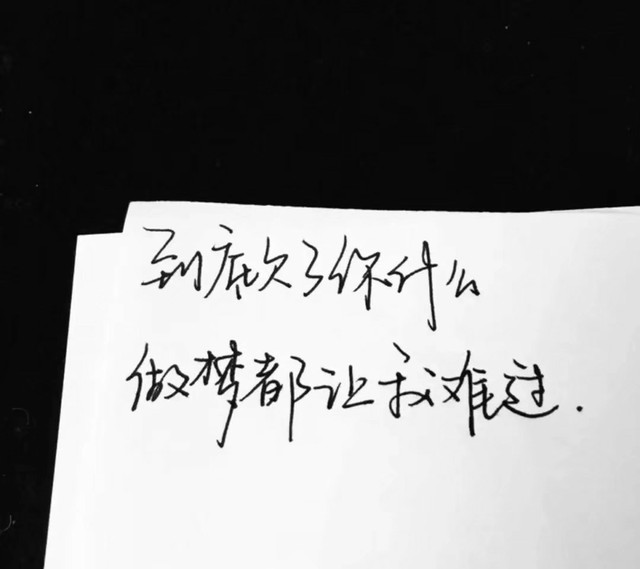 到底欠了你什么
做梦都让我难过.